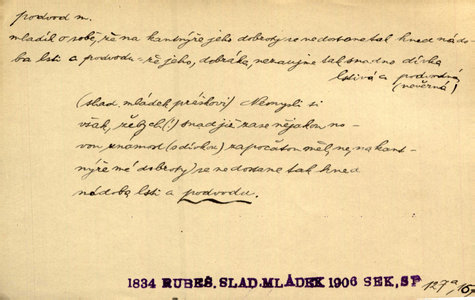 podvod m.
mladík o sobě, že na kantnýře jeho dobroty se nedostane tak hned nádo-
ba lsti a podvodu - že jeho, dobráka, nezaujme tak snadno dívka
lstivá a podvodná
(nevěrná)
(slad. mládek přéskovi) Nemysli si
však, žebych (!) snad již zase nějakou no-
vou známost (o dívkou) započatou měl, ne, na kant-
nýře mé dobroty) se nedostane tak hned
nádoba lsti a podvodu.
1834 RUBEŠ, SLAD. MLÁDEK 1906 SEK, SP
127a, 167